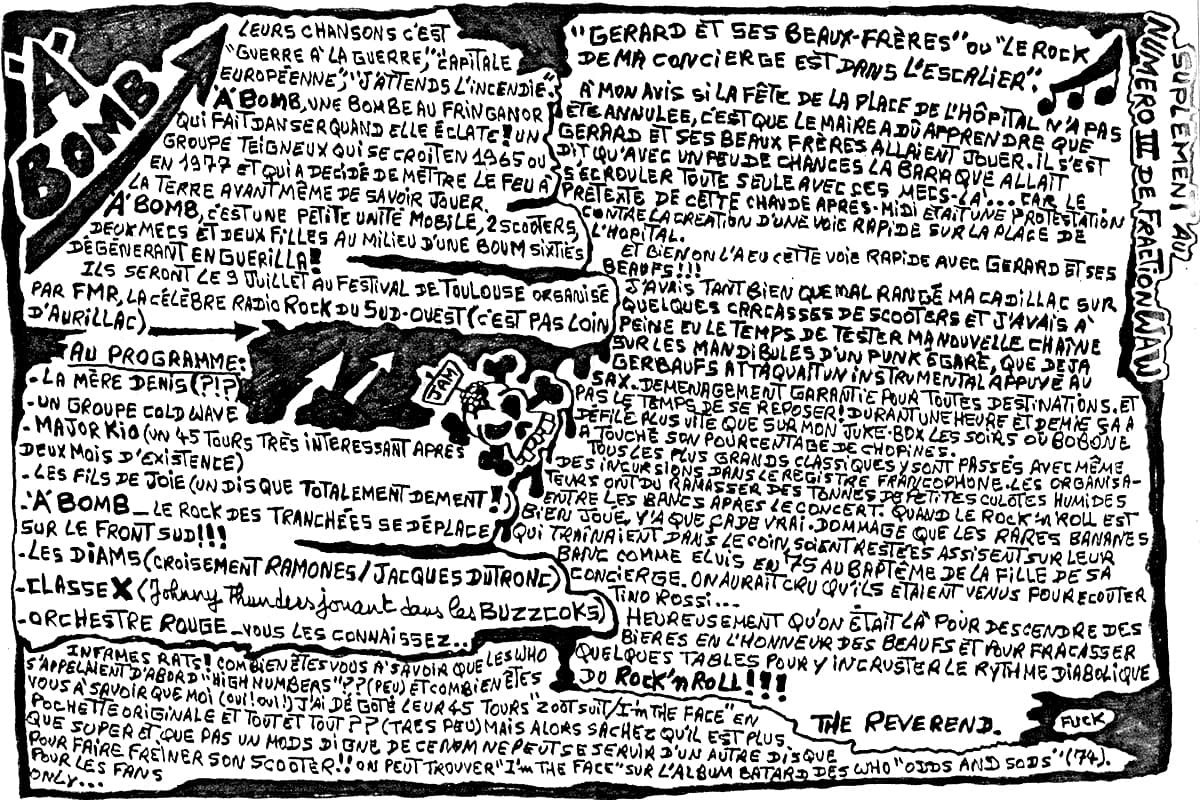 'A' BOMB
LEURS CHANSONS C'EST
"GUERRE À LA GUERRE", "CAPITALE
EUROPÉENNE", "J'ATTENDS L'INCENDIE".
'A' BOMB, UNE BOMBE AU FRINGANOR
QUI FAIT DANSER QUAND ELLE ÉCLATE! UN
GROUPE TEIGNEUX QUI SE CROIT EN 1965 OU
EN 1977 ET QUI A DÉCIDÉ DE METTRE LE FEU À
LA TERRE AVANT MÊME DE SAVOIR JOUER.
'A' BOMB, C'EST UNE PETITE UNITÉ MOBILE, 2 SCOOTERS,
DEUX MECS ET DEUX FILLES AU MILIEU D'UNE BOUM SIXTIES
DÉGÉNERANT EN GUERILLA!
ILS SERONT LE 9 JUILLET AU FESTIVAL DE TOULOUSE ORGANISÉ
PAR FMR, LA CÉLÈBRE RADIO ROCK DU SUD-OUEST (C'EST PAS LOIN
D'AURILLAC)
AU PROGRAMME:
- LA MÈRE DENIS (?!?)
- UN GROUPE COLD WAVE
- MAJOR KID (UN 45 TOURS TRÈS INTERESSANT APRÈS
DEUX MOIS D'EXISTENCE)
- LES FILS DE JOIE (UN DISQUE TOTALEMENT DEMENT!)
- 'A' BOMB _ LE ROCK DES TRANCHÉES SE DÉPLACE
SUR LE FRONT SUD!!!
- LES DIAMS (CROISEMENT RAMONES/JACQUES DUTRONC)
- CLASSE X (Johnny Thunders jouant dans les BUZZCOKS)
- ORCHESTRE ROUGE _ VOUS LES CONNAISSEZ..
JAM
INFAMES RATS! COMBIEN ÊTES VOUS À SAVOIR QUE LES WHO
S'APPELMENT D'ABORD "HIGH NUMBERS"?? (PEU) ET COMBIEN ÊTES
VOUS À SAVOIR QUE MOI (OUI! OUI!) J'AI DEGOTÉ LEUR 45 TOURS "ZOOT SUIT/I'm THE FACE" EN
POCHETTE ORIGINALE ET TOUT ET TOUT?? (TRES PEU) MAIS ALORS SACHEZ QU'IL EST PLUS
QUE SUPER ET QUE PAS UN MODS DIGNE DE CE NOM NE PEUT SE SERVIR D'UN AUTRE DISQUE
POUR FAIRE FREINER SON SCOOTER!! ON PEUT TROUVER "I'm THE FACE" SUR L'ALBUM BATARD DES WHO "ODDS AND SODS" (74).
POUR LES FANS
ONLY...
"GERARD ET SES BEAUX-FRÈRES" OU "LE ROCK
DE MA CONCIERGE EST DANS L'ESCALIER".
À MON AVIS SI LA FÊTE DE LA PLACE DE L'HÔPITAL N'A PAS
ÉTÉ ANNULEE, C'EST QUE LE MAIRE A DÛ APPRENDRE QUE
GERARD ET SES BEAUX FRÈRES ALLAIENT JOUER. IL S'EST
DIT QU'AVEC UN PEU DE CHANCES LA BARAQUE ALLAIT
S'ECROULER TOUTE SEULE AVEC CES MECS-LÀ... CAR LE
PRÉTEXTE DE CETTE CHAUDE APRÈS-MIDI ÉTAIT UNE PROTESTATION
CONTRE LA CREATION D'UNE VOIE RAPIDE SUR LA PLACE DE
L'HOPITAL.
ET BIEN ON L'A EU CETTE VOIE RAPIDE AVEC GERARD ET SES
BEAUFS!!!
J'AVAIS TANT BIEN QUE MAL RANGÉ MA CADILLAC SUR
QUELQUES CARCASSES DE SCOOTERS ET J'AVAIS À
PEINE EU LE TEMPS DE TESTER MA NOUVELLE CHAÎNE
SUR LES MANDIBULES D'UN PUNK ÉGARÉ, QUE DEJA
GERBAUFS ATTAQUAIT UN INSTRUMENTAL APPUYÉ AU
SAX. DEMENAGEMENT GARANTIE POUR TOUTES DESTINATIONS. ET
PAS LE TEMPS DE SE REPOSER! DURANT UNE HEURE ET DEMIE ÇA A
DÉFILÉ PLUS VITE QUE SUR MON JUKE-BOX LES SOIRS OÙ BOBONE
A TOUCHÉ SON POURCENTAGE DE CHOPINES.
TOUS LES PLUS GRANDS CLASSIQUES Y SONT PASSÉS AVEC MÊME
DES INCURSIONS DANS LE REGISTRE FRANCOPHONE. LES ORGANISA-
TEURS ONT DU RAMASSER DES TONNES DE PETITES CULOTES HUMIDES
ENTRE LES BANCS APRÈS LE CONCERT. QUAND LE ROCK'n ROLL EST
BIEN JOUÉ, Y'A QUE ÇA DE VRAI. DOMMAGE QUE LES RARES BANANES
QUI TRAINAIENT DANS LE COIN, SOIENT RESTÉES ASSISENT SUR LEUR
BANC COMME ELVIS EN 75 AU BAPTÊME DE LA FILLE DE SA
CONCIERGE. ON AURAIT CRU QU'ILS ÉTAIENT VENUS POUR ECOUTER
TINO ROSSI...
HEUREUSEMENT QU'ON ÉTAIT LÀ POUR DESCENDRE DES
BIÈRES EN L'HONNEUR DES BEAUFS ET POUR FRACASSER
QUELQUES TABLES POUR Y INCRUSTER LE RYTHME DIABOLIQUE
DU ROCK'n ROLL!!!
THE REVEREND.
FUCK
SUPLEMENT AU
NUMERO III DE FRACTION WAW